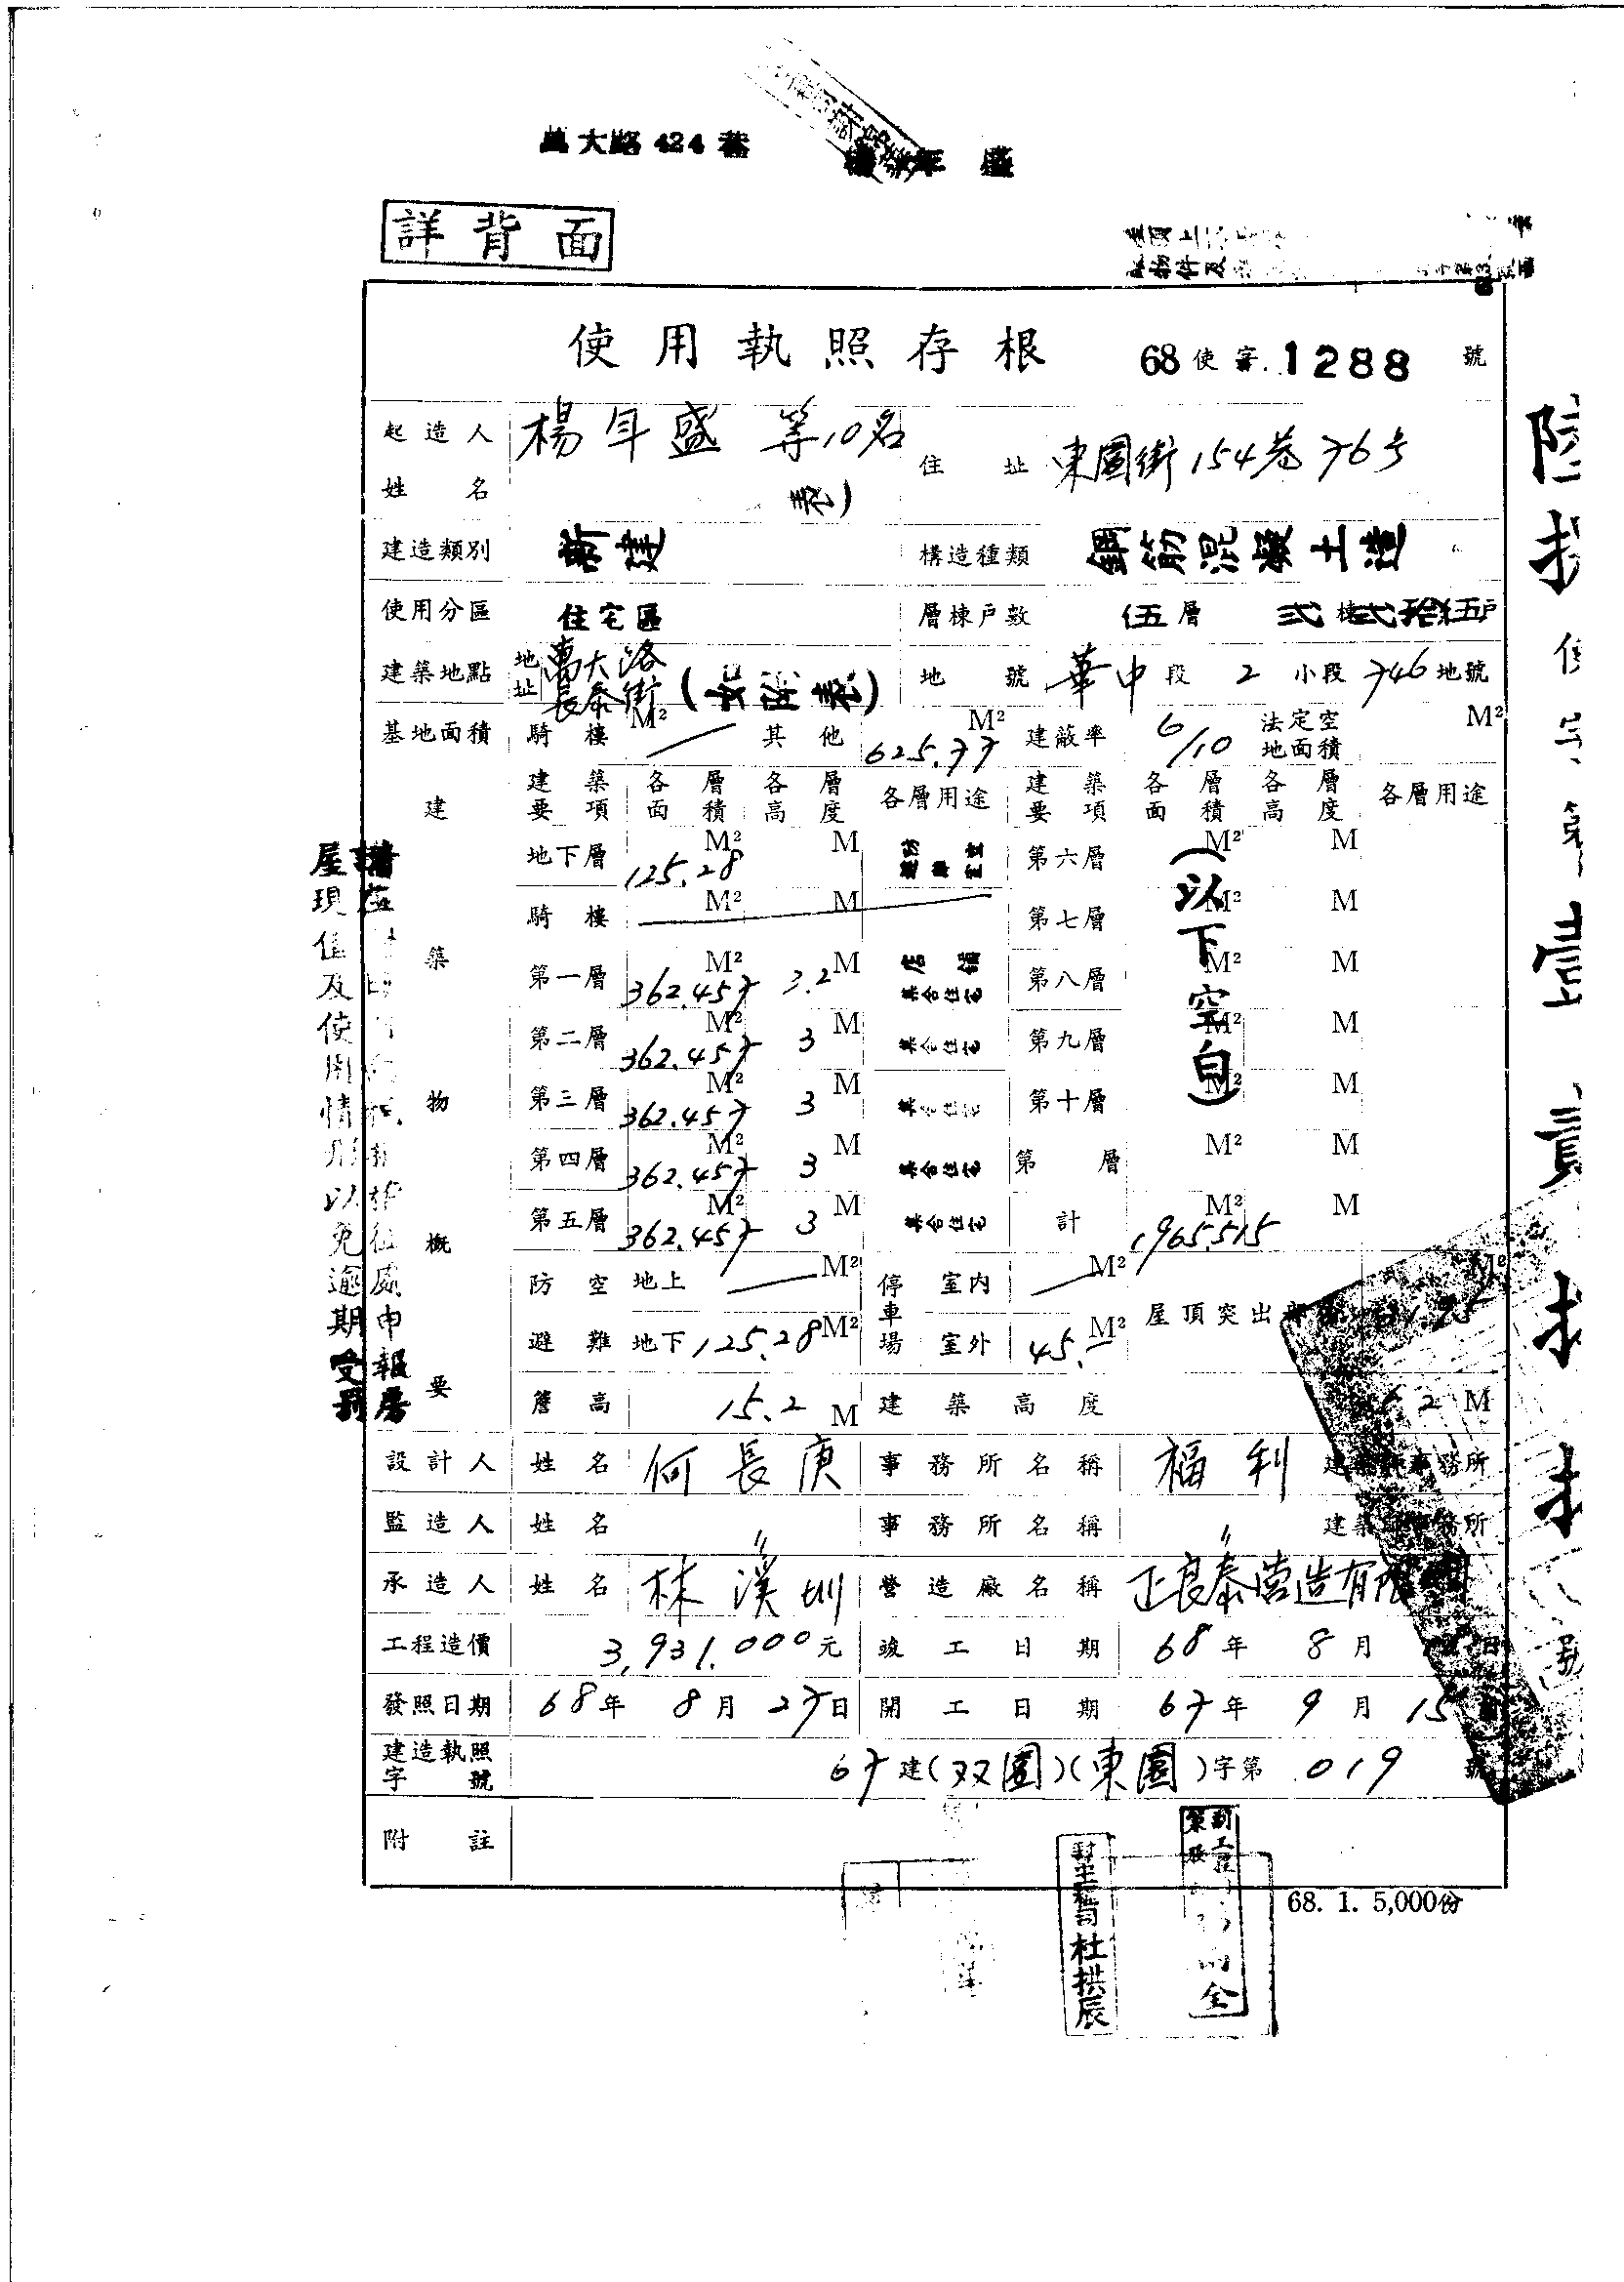 萬大路 424 巷
年 盛
詳背面
使用執照存根 68 使字 1288 號
起造人姓名 楊年盛 等10名 表) 住址 東園街154巷76号
建造類別 新建 構造種類 鋼筋混凝土造
使用分區 住宅區 層棟戶數 伍層 弍棟弍拾伍戶
建築地點 地址 萬大路 長泰街 ( 表) 地號 華中段 2 小段 746 地號
基地面積 騎樓 M² — 其他 625.77 M² 建蔽率 6/10 法定空地面積 M²
建築要項 各層面積 各層高度 各層用途 建築要項 各層面積 各層高度 各層用途
建築物概要
地下層 125.28 M² M 第六層 M² M
騎樓 M² M 第七層 M² M
第一層 362.457 M² 3.2 M 店舖 集合住宅 第八層 M² M
第二層 362.457 M² 3 M 集合住宅 第九層 M² M
第三層 362.457 M² 3 M 集合住宅 第十層 M² M
第四層 362.457 M² 3 M 集合住宅 第 層 M² M
第五層 362.457 M² 3 M 集合住宅 計 1965.515 M² M
(以下空白)
防空避難 地上 — M² 停車場 室內 — M² 屋頂突出 M²
地下 125.28 M² 室外 45.- M²
簷高 15.2 M 建築高度 2 M
設計人 姓名 何長庚 事務所名稱 福利 建築師事務所
監造人 姓名 〃 事務所名稱 〃 建築師事務所
承造人 姓名 林溪圳 營造廠名稱 正良泰营造有限
工程造價 3,931.000元 竣工日期 68年 8月 日
發照日期 68年 8月 27日 開工日期 67年 9月 15
建造執照字號 67建(双園)(東園)字第 019 號
附註
68. 1. 5,000份
杜拱辰
全
屋現值及使用情形以免逾期受罰
申報房